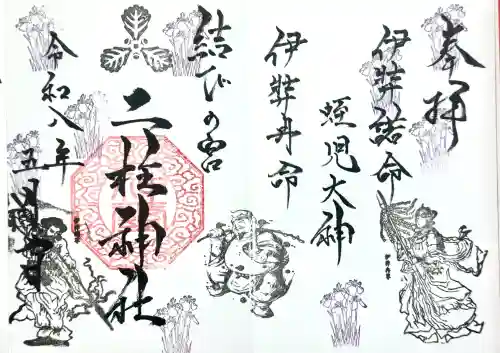 奉拝
伊弉諾命
蛭児大神
伊弉冉命
結びの宮
二柱神社
令和八年
五月